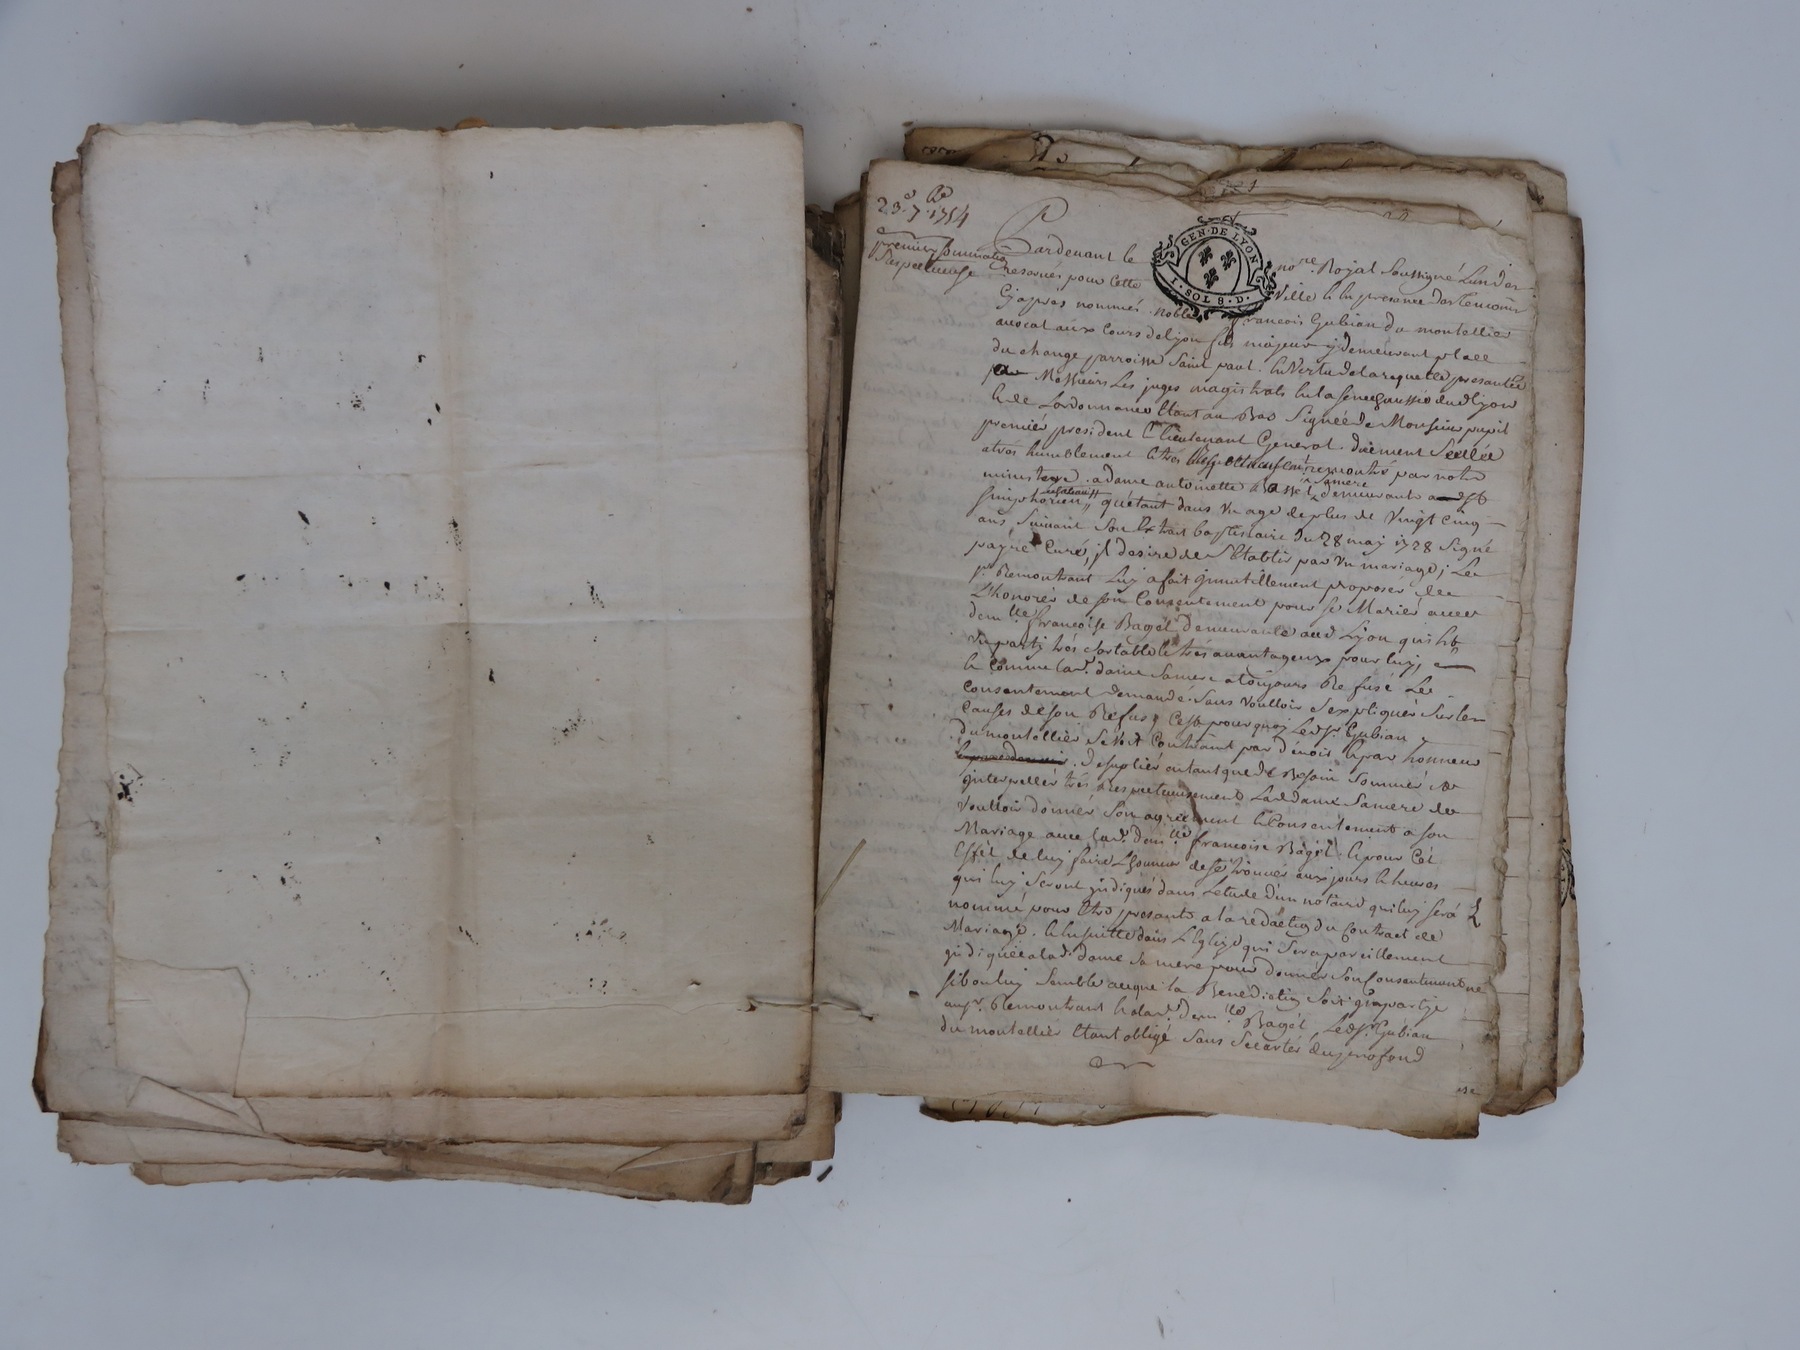 23.e 7.bre 1754
premier sommation
Respectueuse
Pardevant le no.re Royal Soussigné Lun des
GEN·DE LYON
I·SOL 8·D·
Reservés pour cette Ville & en presence des Temoins
Cyapres nommés. noble francois Gubian du montellier
avocat aux Cours de lyon fils majeur y demeurant place
du change parroisse Saint paul. En Vertu de la requette presantée
a Messieurs Les juges magistrats en la senechaussée dud lyon
& de Lordonnance Etant au Bas Signée de Monsieur pupil
premier president & lieutenant General. düement Scellée
a tres humblement & très Respectueusem.t remontré par notre
ministere. a dame antoinette Basset sa mere demeurante a
simphorien qu'etant dans un age de plus de Vingt Cinq
ans, Suivant Son Extrait baptistaire du 28 may 1728 Signé
Curé, il desire de s'Etablir par un mariage; Le
s.r Remontrant Luy a fait jnnutillement proposer de
L'honorer de son Consentement pour se Marier avec
dem.lle francoise Bagel demeurante aud Lyon qui Est
un party très sortable & très avantageux pour luy,
& Comme lad.e dame sa mere a toujours Refusé Le
Consentement demandé. Sans Voulloir s'expliquer Sur les
Causes de son Refus, C'est pourquoy Led s.r Gubian
du montellier se Voit Contraint par devoir & par honneur
de suplier autant que de Besoin Sommer &
jnterpeller très Respectueusement Lad.e dame Sa mere de
Voulloir donner Son agrement & Consentement a son
Mariage avec lad.e dem.lle francoise Bagel. & pour Cet
Effet de luy faire L'honneur de se trouver aux jours & heures
qui luy Seront jndiqués dans L'etude d'un notaire qui luy Sera
nommé pour Etre presante a la redaction du Contract de
Mariage. & En suitte dans L'Eglize qui Sera pareillement
jndiquée a lad.e dame Sa mere pour donner Son Consentement
si bon luy Semble a ce que la Benediction Soit jmpartie
aus.r Remontrant & a lad.e dem.lle Bagel, Led s.r Gubian
du montellier Etant obligé Sans S'ecarter du profond